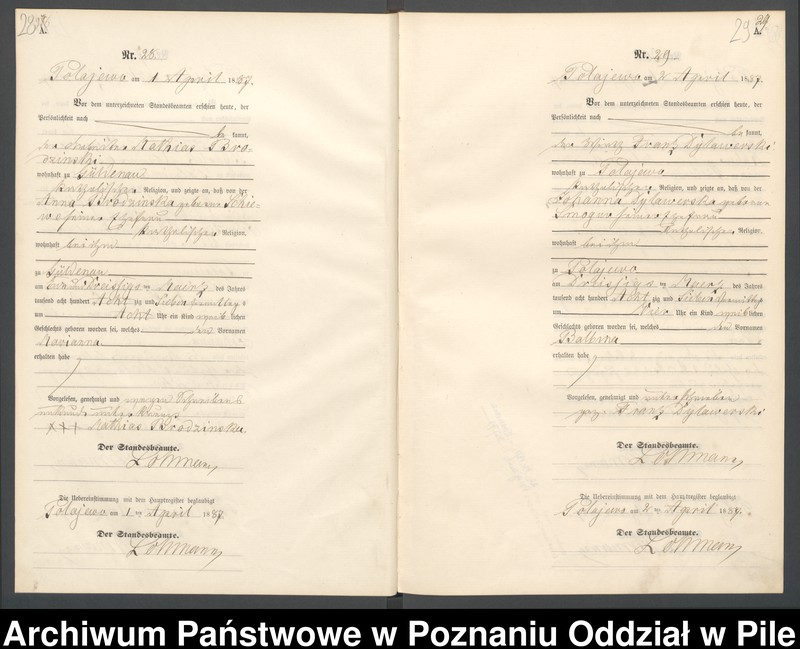 28
A.
Nr. 28
Polajewo am 1 April 1887.
Vor dem unterzeichneten Standesbeamten erschien heute, der
Persönlichkeit nach
be kannt,
der Mathias Bro-
dzinski
wohnhaft zu Güldenau
katholischer Religion, und zeigte an, daß von der
Anna Brodzinska geborne
seiner Ehefrau
katholischer Religion,
wohnhaft bei ihm
zu Güldenau
am ein und dreißigsten März des Jahres
tausend acht hundert Acht zig und Sieben Vormittags
um Acht Uhr ein Kind weiblichen
Geschlechts geboren worden sei, welches den Vornamen
Marianna
erhalten habe
Vorgelesen, genehmigt und wegen Schreibens
unkunde unterkreuzt
+++ Mathias Brodzinski
Der Standesbeamte.
Lohmann
Die Uebereinstimmung mit dem Hauptregister beglaubigt
Polajewo am 1 ten April 1887.
Der Standesbeamte.
Lohmann
29
A.
Nr. 29
Polajewo am 2 April 1887.
Vor dem unterzeichneten Standesbeamten erschien heute, der
Persönlichkeit nach
be kannt,
der Franz Dylawerski
wohnhaft zu Polajewo
katholischer Religion, und zeigte an, daß von der
Johanna Dylawerska geboren
seiner Ehefrau
katholischer Religion,
wohnhaft bei ihm
zu Polajewo
am dreißigsten März des Jahres
tausend acht hundert Acht zig und Sieben
um Vier Uhr ein Kind weiblichen
Geschlechts geboren worden sei, welches den Vornamen
Balbina
erhalten habe
Vorgelesen, genehmigt und unterschrieben
gez. Franz Dylawerski
Der Standesbeamte.
Lohmann
Die Uebereinstimmung mit dem Hauptregister beglaubigt
Polajewo am 2 ten April 1887.
Der Standesbeamte.
Lohmann
Archiwum Państwowe w Poznaniu Oddział w Pile